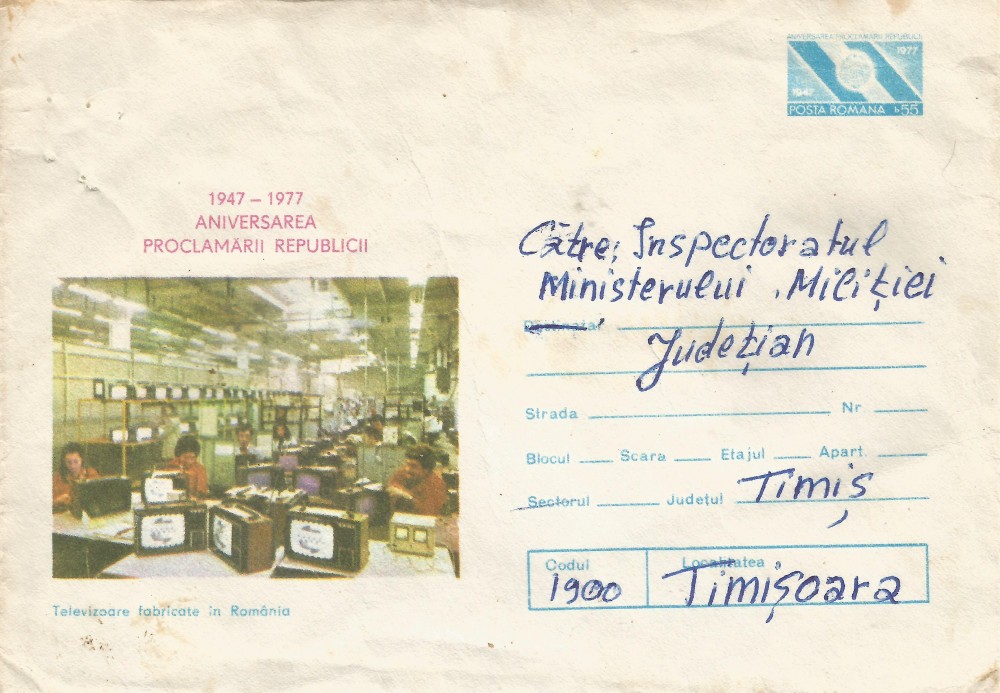 ANIVERSAREA PROCLAMĂRII REPUBLICII
1977
1947
POSTA ROMANA L 55
1947 – 1977
ANIVERSAREA
PROCLAMĂRII REPUBLICII
Către; Inspectoratul
Ministerului Miliției
Destinatar
Județian
Strada Nr
Blocul Scara Etajul Apart.
Sectorul Județul Timiș
Codul Localitatea
1900 Timișoara
Televizoare fabricate în România